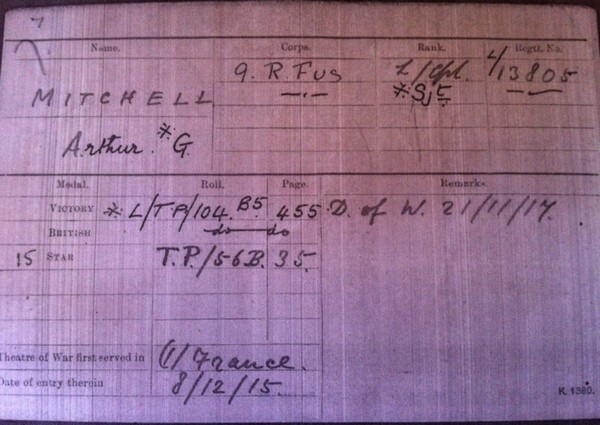 7
Name. Corps. Rank. Regtl. No.
9. R. Fus L/Cpl. L/13805
MITCHELL *Sjt.
Arthur. *G.
Medal. Roll. Page. Remarks.
VICTORY *L/TP/104.B5. 455 D. of W. 21/11/17.
BRITISH do do
15 STAR T.P./56B. 35.
Theatre of War first served in (1) France.
Date of entry therein 8/12/15.
K. 1380.